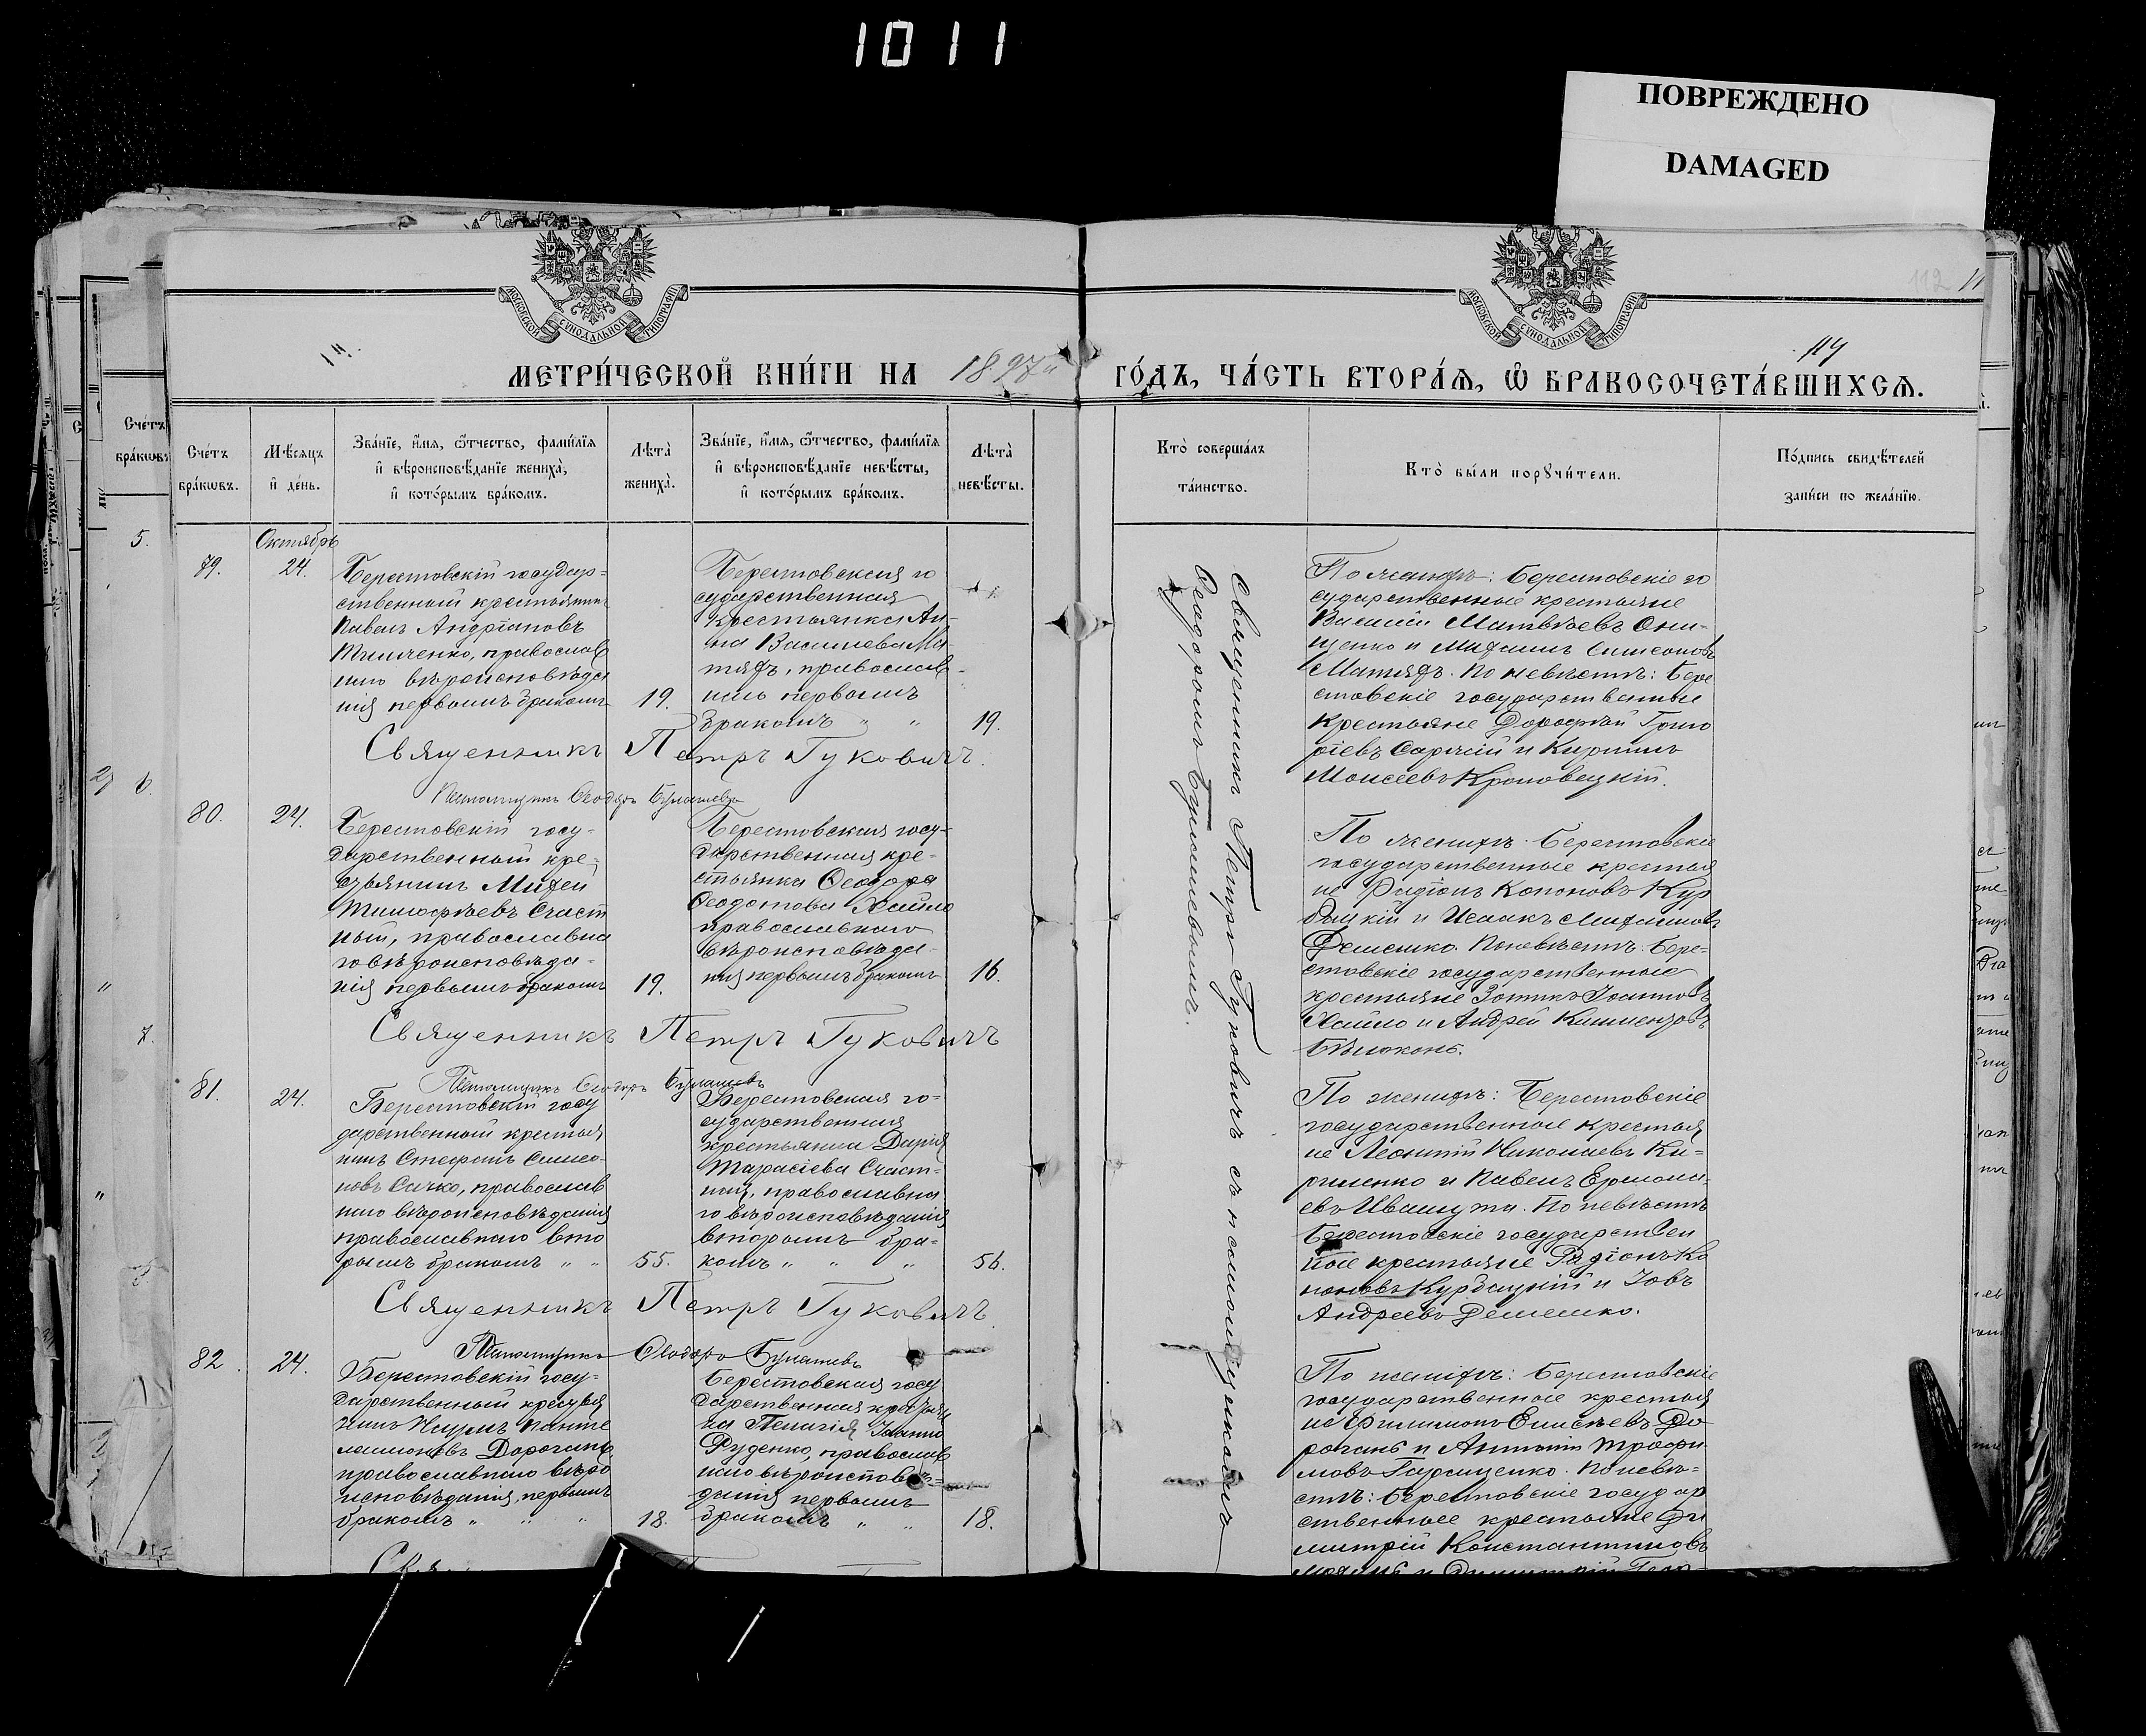 1011
ПОВРЕЖДЕНО
DAMAGED
МОСКОВСКОЙ СѴНОДАЛЬНОЙ ТИПОГРАФІИ
МОСКОВСКОЙ СѴНОДАЛЬНОЙ ТИПОГРАФІИ
112
114
МЕТРИ́ЧЕСКОЙ КНИ́ГИ НА 1897й ГО́ДЪ, ЧА́СТЬ ВТОРА́Ѧ, Ѽ БРАКОСОЧЕТА́ВШИХСѦ.
Сче́тъ бра́кѡвъ.
Мѣ́сяцъ и҆ де́нь.
Зва́нїе, и҆́мѧ, ѻ҆́тчество, фами́лїѧ
и҆ вѣроисповѣ́данїе жениха̀,
и҆ кото́рымъ бра́комъ.
Лѣ́та̀ жениха̀.
Зва́нїе, и҆́мѧ, ѻ҆́тчество, фами́лїѧ
и҆ вѣроисповѣ́данїе невѣ́сты,
и҆ кото́рымъ бра́комъ.
Лѣ́та̀ невѣ́сты.
Кто̀ соверша́лъ
та́инство.
Кто̀ бы́ли порꙋчи́тели.
По́дпись свидѣ́телей
за́писи по жела́нїю.
Октябрь
79.
24.
Берестовскій государ-
ственный крестьянинъ
Павелъ Андріановъ
православ
наго вѣроисповѣда
нія первымъ бракомъ
19.
Берестовская го
сударственная
крестьянка Ан-
на Васильева Ма-
тяхъ, православ-
наго первымъ
бракомъ " "
19.
Священникъ Петръ Гуковичъ.
Псаломщикъ Ѳеодоръ
По женихѣ: Берестовскіе го
сударственные крестьяне
Василій Матвѣевъ Они-
щенко и Михаилъ Симеоновъ
Матяхъ. По невѣстѣ: Бере
стовскіе государственные
крестьяне Дороѳей Григо
ріевъ и Кириллъ
Моисеевъ
Священникъ Петръ Гуковичъ съ псаломщикомъ
Ѳеодоромъ
80.
24.
Берестовскій госу-
дарственный кре-
стьянинъ Михей
Тимоѳѣевъ Счаст
ный, православна
го вѣроисповѣда-
нія первымъ бракомъ
19.
Берестовская госу-
дарственная кре-
стьянка Ѳеодора
Ѳеодотова Хайло
православнаго
вѣроисповѣда-
нія первымъ бракомъ
16.
Священникъ Петръ Гуковичъ
Псаломщикъ Ѳеодоръ
По женихѣ: Берестовскіе
государственные крестья
не Радіонъ Кононовъ Кур
бацкій и Исаакъ Михаиловъ
Демешко. По невѣстѣ: Бере-
стовскіе государственные
крестьяне Зотикъ Іоанновъ
Хайло и Андрей Климентовъ
Бѣлоконь.
81.
24.
Берестовскій госу
дарственный крестья
нинъ Стефанъ Симео-
новъ Сичко, православ
наго вѣроисповѣданія
православнаго вто
рымъ бракомъ " "
55.
Берестовская го-
сударственная
крестьянка Дарія
Тарасіева Счаст-
ная, православна
го вѣроисповѣданія
вторымъ бра-
комъ " " "
56.
Священникъ Петръ Гуковичъ.
Псаломщикъ Ѳеодоръ
По женихѣ: Берестовскіе
государственные крестья
не Леонтій Николаевъ Ки-
риленко и Павелъ Ермола-
евъ Ивашута. По невѣстѣ
Берестовскіе государствен
ные крестьяне Радіонъ Ко
ноновъ Курбацкій и Іовъ
Андреевъ Демешко.
82.
24.
Берестовскій госу-
дарственный крестья
нинъ Наумъ Панте
леимоновъ Дорогань
православнаго вѣро
исповѣданія, первымъ
бракомъ " " "
18.
Берестовская госу
дарственная крестьян
ка Пелагія Іоанно
Руденко, православ
наго вѣроисповѣ-
данія первымъ
бракомъ " "
18.
По женихѣ: Берестовскіе
государственные крестья
не Филимонъ Елисѣевъ До
рогань и Антоній Трофи
мовъ Геращенко. По невѣ-
стѣ: Берестовскіе государ
ственные крестьяне Ди
митрій Константиновъ